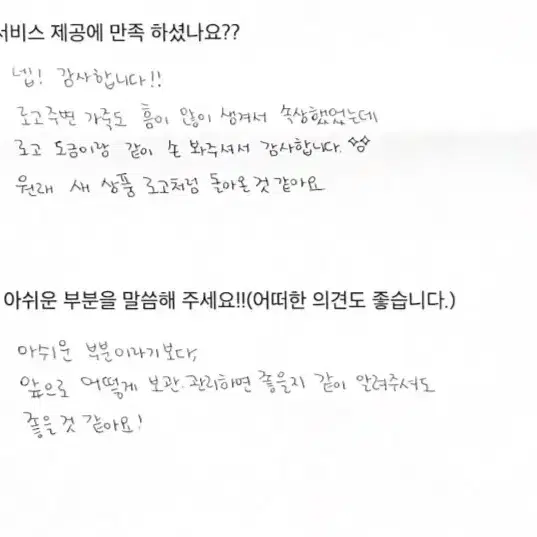 서비스 제공에 만족 하셨나요??
넵! 감사합니다!!
로고주변 가죽도 흠이 많이 생겨서 속상했었는데
로고 도금이랑 같이 손 봐주셔서 감사합니다.
원래 새 상품 로고처럼 돌아온것 같아요
아쉬운 부분을 말씀해 주세요!!(어떠한 의견도 좋습니다.)
아쉬운 부분이라기보다,
앞으로 어떻게 보관.관리하면 좋을지 같이 알려주셔도
좋을것 같아요!